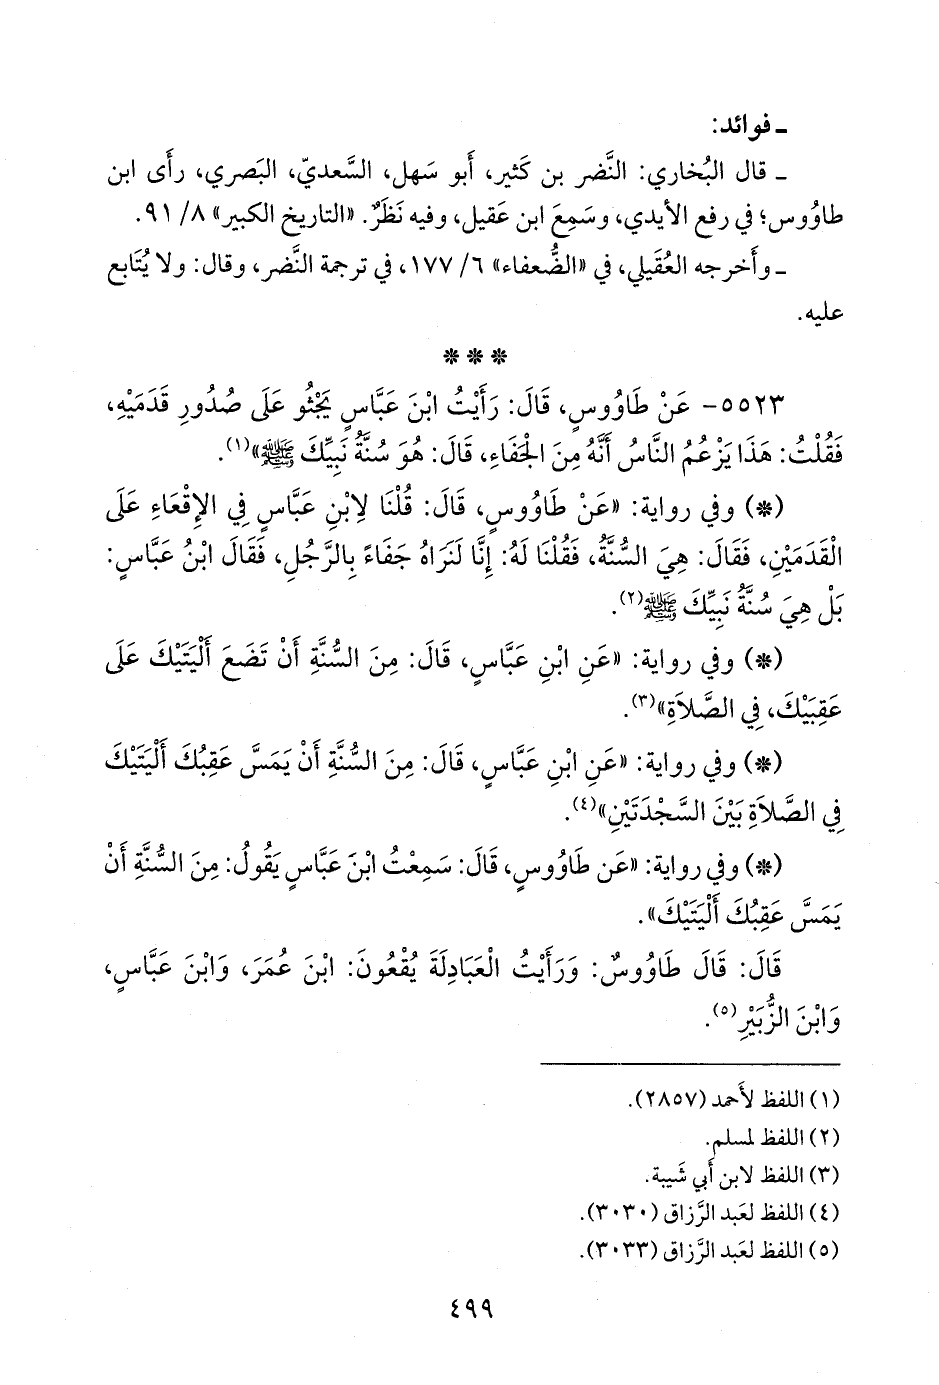 ـ فوائد:
ـ قال البُخاري: النَّضر بن كَثير، أَبو سَهل، السَّعديّ، البَصري، رأَى ابن
طاوُوس؛ في رفع الأَيدي، وسَمِعَ ابن عَقيل، وفيه نَظَرٌ. «التاريخ الكبير» ٨/ ٩١.
ـ وأَخرجه العُقَيلي، في «الضُّعفاء» ٦/ ١٧٧، في ترجمة النَّضر، وقال: ولا يُتَابع
عليه.
* * *
٥٥٢٣- عَنْ طَاوُوسٍ، قَالَ: رَأَيْتُ ابْنَ عَبَّاسٍ يَجْثُو عَلَى صُدُورِ قَدَمَيْهِ،
فَقُلْتُ: هَذَا يَزْعُمُ النَّاسُ أَنَّهُ مِنَ الْجَفَاءِ، قَالَ: هُوَ سُنَّةُ نَبِيِّكَ ﷺ»(١).
(*) وفي رواية: «عَنْ طَاوُوسٍ، قَالَ: قُلْنَا لِابْنِ عَبَّاسٍ فِي الإِقْعَاءِ عَلَى
الْقَدَمَيْنِ، فَقَالَ: هِيَ السُّنَّةُ، فَقُلْنَا لَهُ: إِنَّا لَنَرَاهُ جَفَاءً بِالرَّجُلِ، فَقَالَ ابْنُ عَبَّاسٍ:
بَلْ هِيَ سُنَّةُ نَبِيِّكَ ﷺ(٢).
(*) وفي رواية: «عَنِ ابْنِ عَبَّاسٍ، قَالَ: مِنَ السُّنَّةِ أَنْ تَضَعَ أَلْيَتَيْكَ عَلَى
عَقِبَيْكَ، فِي الصَّلاَةِ»(٣).
(*) وفي رواية: «عَنِ ابْنِ عَبَّاسٍ، قَالَ: مِنَ السُّنَّةِ أَنْ يَمَسَّ عَقِبُكَ أَلْيَتَيْكَ
فِي الصَّلاَةِ بَيْنَ السَّجْدَتَيْنِ»(٤).
(*) وفي رواية: «عَن طَاوُوسٍ، قَالَ: سَمِعْتُ ابْنَ عَبَّاسٍ يَقُولُ: مِنَ السُّنَّةِ أَنْ
يَمَسَّ عَقِبُكَ أَلْيَتَيْكَ».
قَالَ: قَالَ طَاوُوسٌ: وَرَأَيْتُ الْعَبَادِلَةَ يُقْعُونَ: ابْنَ عُمَرَ، وَابْنَ عَبَّاسٍ،
وَابْنَ الزُّبَيْرِ(٥).
(١) اللفظ لأَحمد (٢٨٥٧).
(٢) اللفظ لمسلم.
(٣) اللفظ لابن أَبي شَيبة.
(٤) اللفظ لعَبد الرَّزاق (٣٠٣٠).
(٥) اللفظ لعَبد الرَّزاق (٣٠٣٣).
٤٩٩